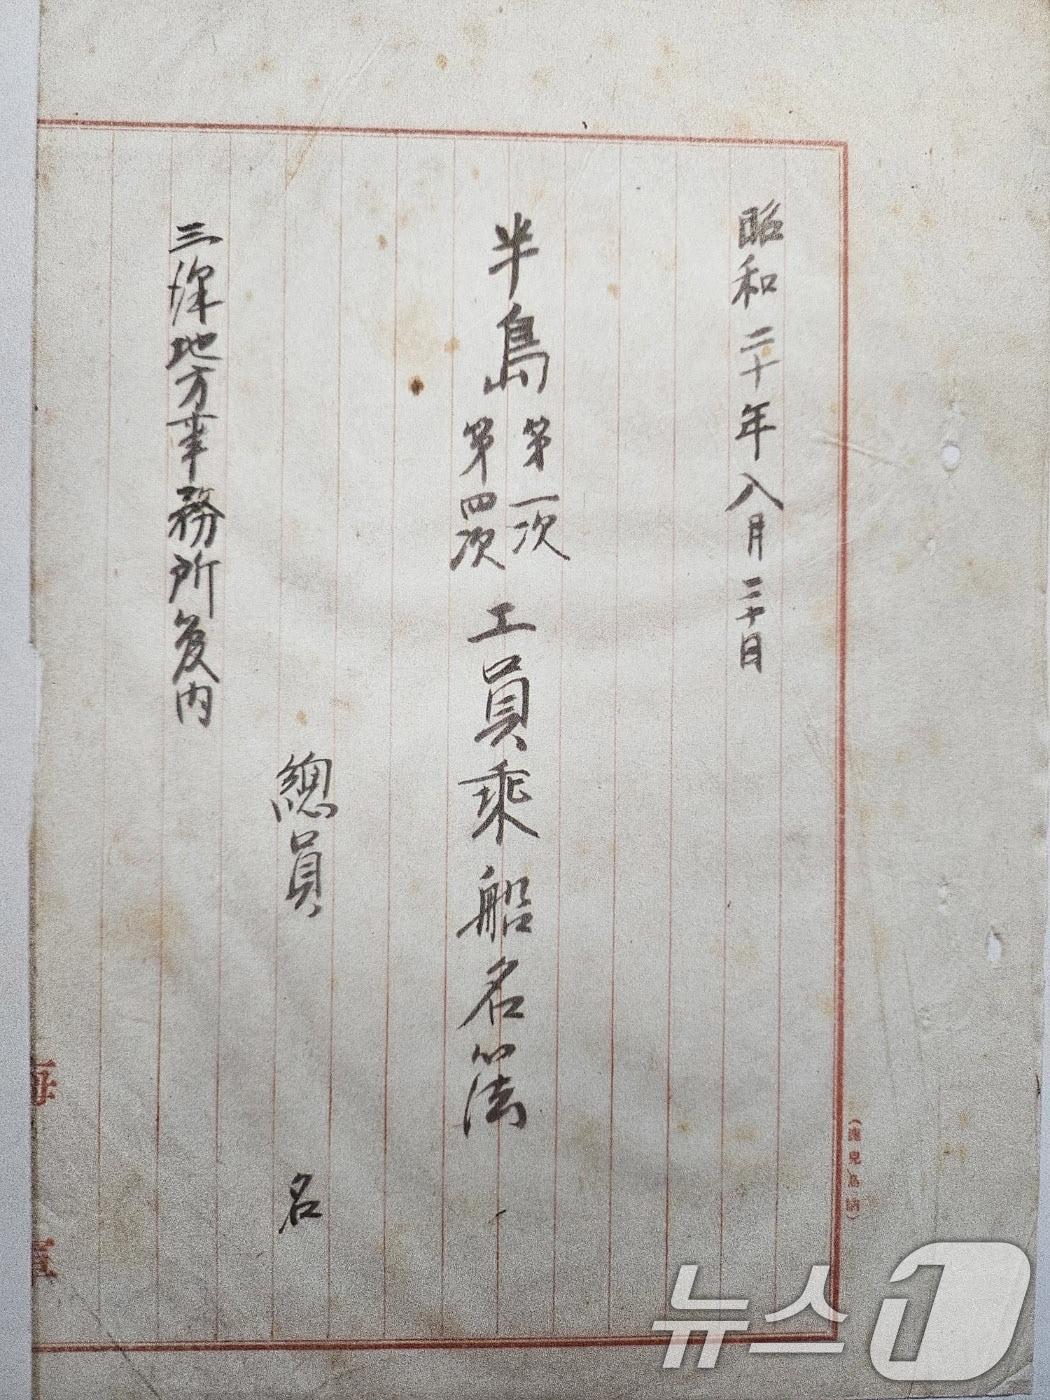 昭和二十年八月二十日
半島第一次第四次工員乗船名簿
總員 名
三澤地方事務所内
海軍
(鹿兒島納)
뉴스1